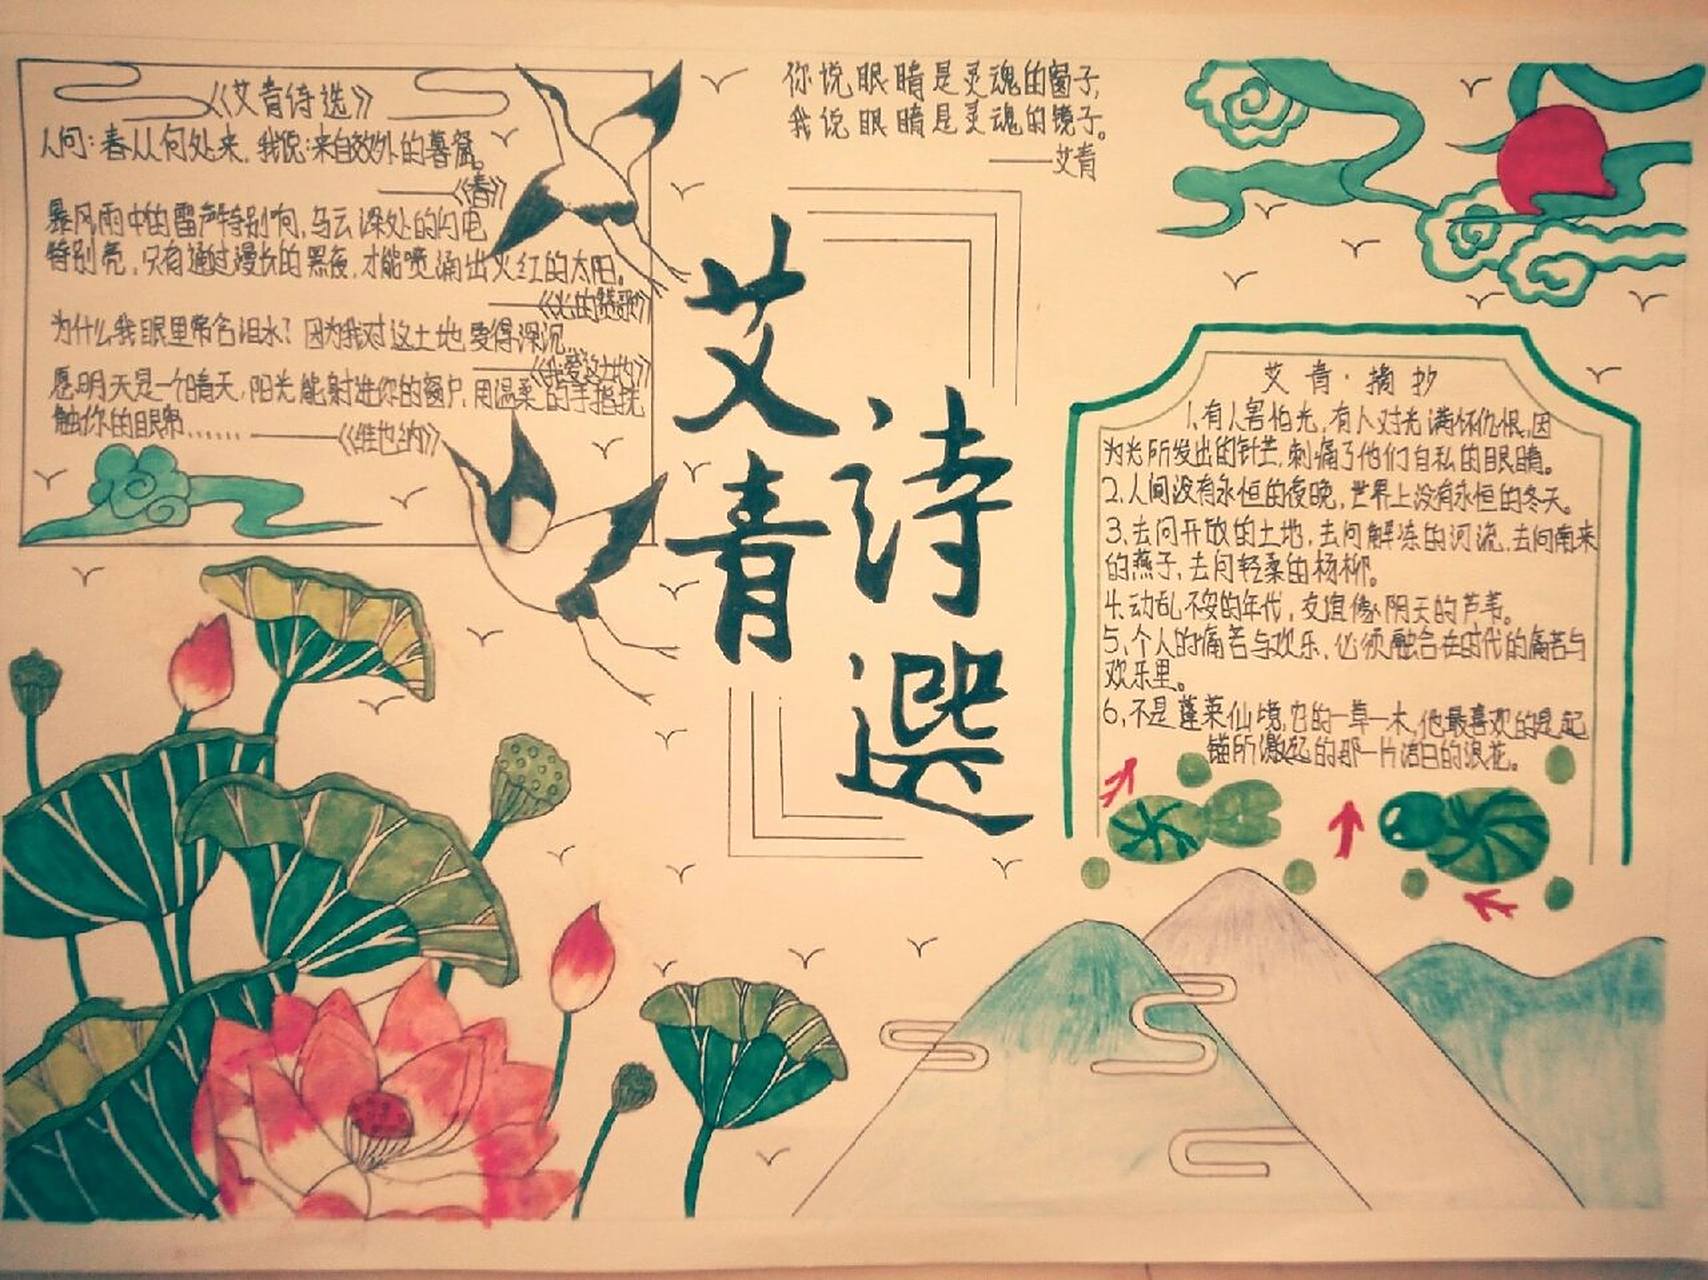 《艾青诗选》
人问：春从何处来，我说：来自郊外的墓窟。
——《春》
暴风雨中的雷声特别响，乌云深处的闪电
特别亮，只有通过漫长的黑夜，才能喷涌出火红的太阳。
——《光的赞歌》
为什么我眼里常含泪水？因为我对这土地爱得深沉…
——《我爱这土地》
愿明天是一个晴天，阳光能射进你的窗户，用温柔的手指抚
触你的眼帘……——《维也纳》
你说眼睛是灵魂的窗子，
我说眼睛是灵魂的镜子。
——艾青
艾青
诗選
艾青·摘抄
1.有人害怕光，有人对光满怀仇恨，因
为光所发出的针芒，刺痛了他们自私的眼睛。
2.人间没有永恒的夜晚，世界上没有永恒的冬天。
3.去问开放的土地，去问解冻的河流，去问南来
的燕子，去问轻柔的杨柳。
4.动乱不安的年代，友谊像阴天的芦苇。
5.个人的痛苦与欢乐，必须融合在时代的痛苦与
欢乐里。
6.不是蓬莱仙境，它的一草一木，他最喜欢的是起
锚所激起的那一片洁白的浪花。